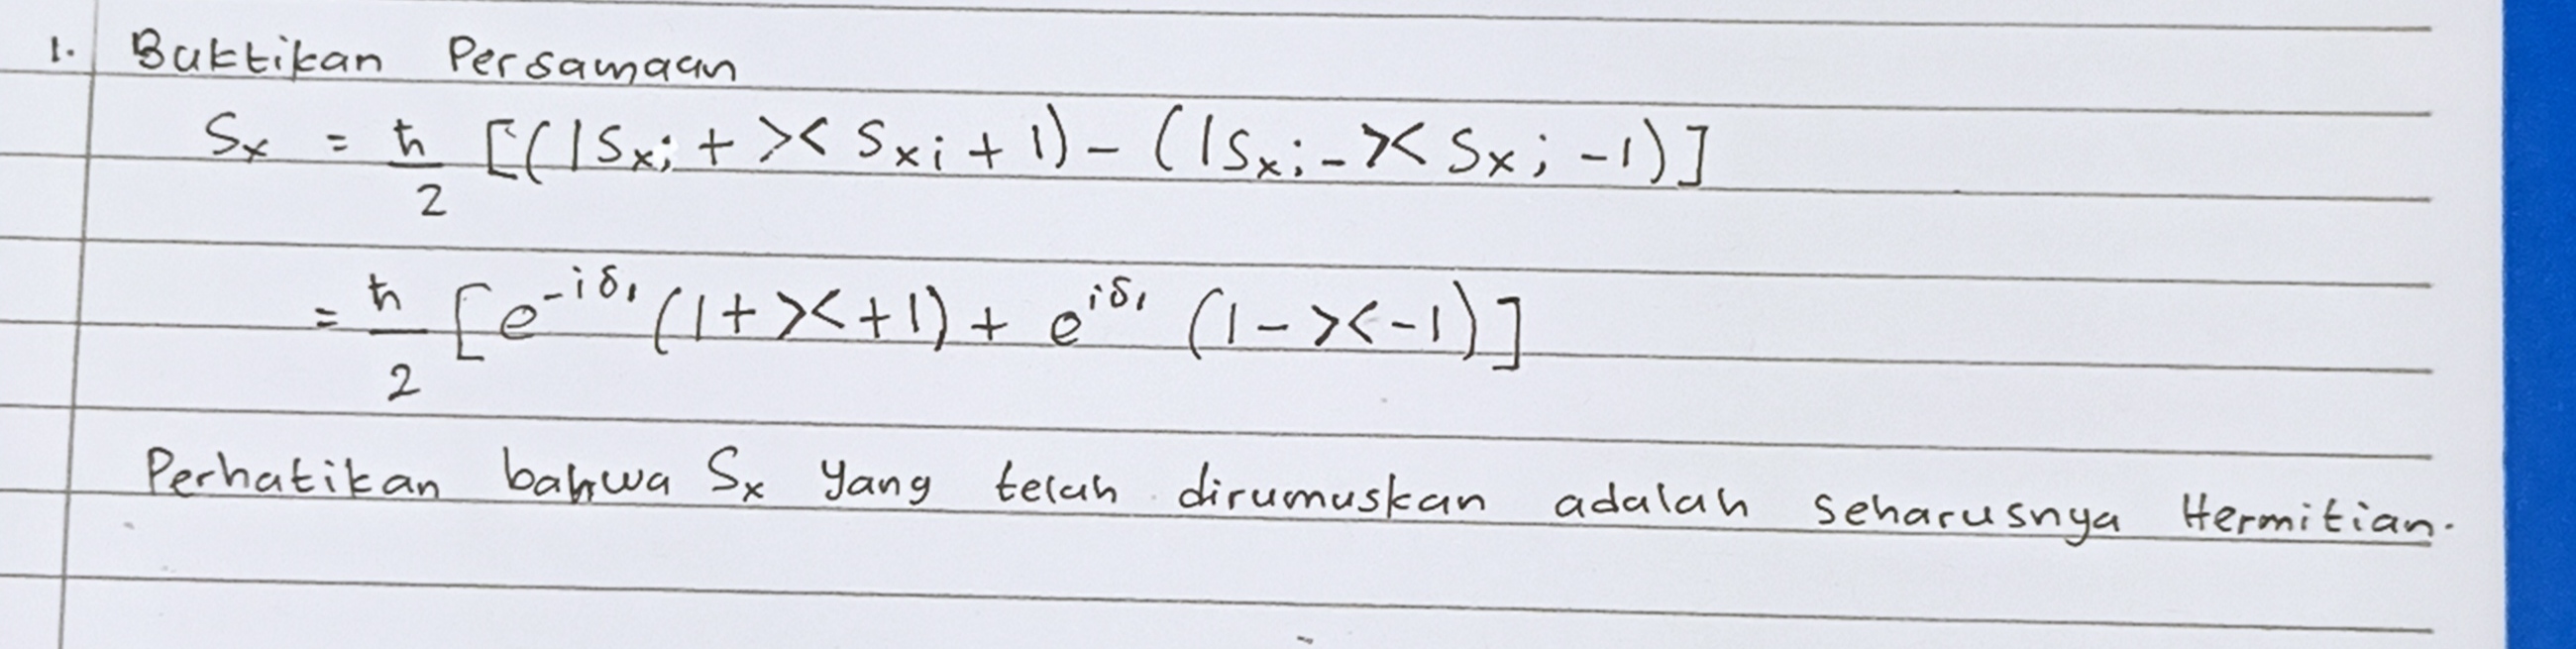 1. Buktikan Persamaan
Sx = ħ/2 [(|Sx;+><Sx;+|) - (|Sx;-><Sx;-|)]
= ħ/2 [e^-iδ₁ (|+><+|) + e^iδ₁ (|-><-|)]
Perhatikan bahwa Sx yang telah dirumuskan adalah seharusnya Hermitian.